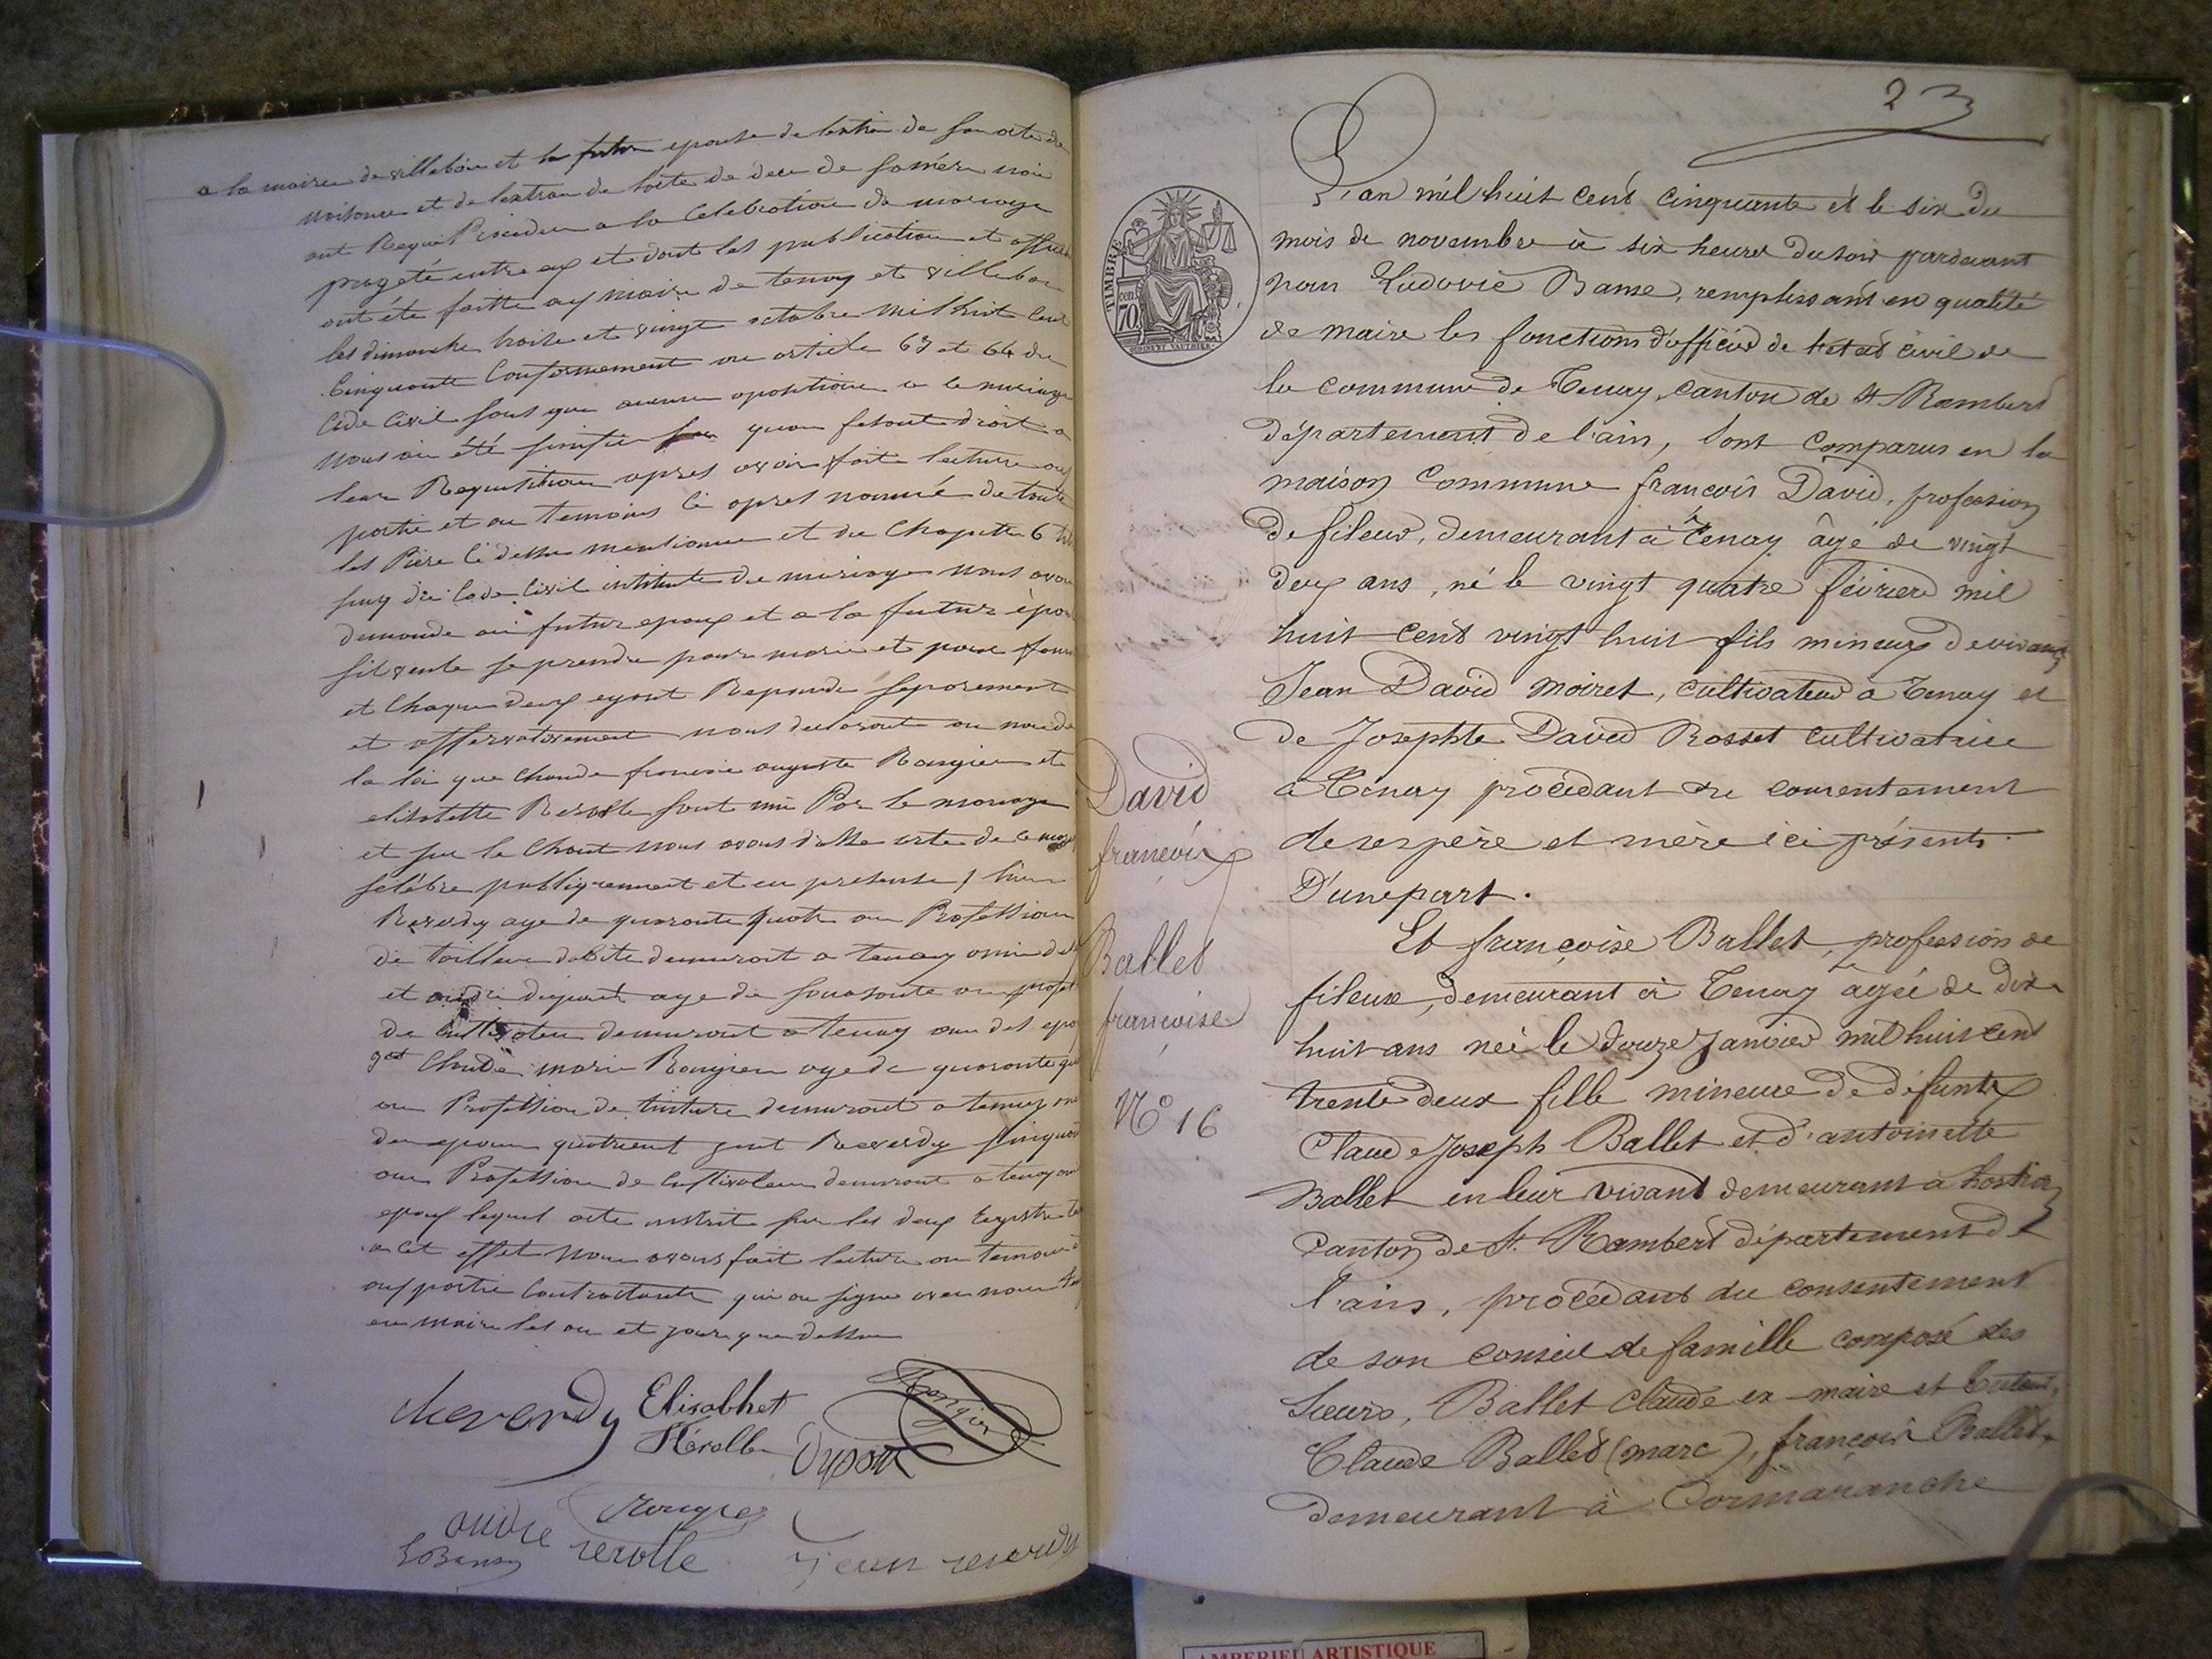 a la mairie de villebois et la future epouse de lextrai de son acte de
naisance et de lextrai de lacte de deces de sa mère nous
ont Requi Procedere a la Celebration du mariage
progeté entre eux et dont les publication et affiche
ont été faitte aux mairie de tenay et villebois
les dimanche treize et vingt octobre mil huit Cent
Cinquante Conformement au article 63 et 64 du
Code Civil sans que aucune opositione a ce mariage
nous ai été sinifié quan fesant droit a
leur Requisition apres avoir faite lecture aux
partie et au temoins ci apres nommé de toute
les Piece ci dessu mentionnee et du Chapitre 6
du Code Civil intitule du mariage nous avon
demande au futur epoux et a la future épou
sil veule se prendre pour mari et pour fem
et Chaqun deux eyant Repondu separement
et affirmativement nous declarons au nom de
la loi que Claude francois auguste Rougier et
elisabette Revolle sont uni Par le mariage
et sur le Chant nous avons dresse acte de ce mariage
sélébre publiquement et en presense
Reverdy age de quarante quatre an Profession
de tailleur dabit demurant a tenay ami des
et age de soixante an profes
de cultivateur demurant a tenay ami des epou
Claude marie Rougier age de quarante
an Profession de demurant a tenay
des epoux quatrieme Jent Reverdy sinquante
an Profession de Cultivateur demurant a tenay
epoux lequel acte inscrit sur les deux registre
a cet effet nous avons fait lecture au temoin
aux partie Contractante qui on signe avec nous
en mairie les an et jour que dessu
cheverdy Elisabhet Rougier
Révolle Dupont
Rougier
andre revolle Jean reverdy
LBanse
23
TIMBRE
70
L'an mil huit cent cinquante et le six du
mois de novembre à six heures du soir pardevant
nous Ludovic Banse, remplissant en qualité
de maire les fonctions d'officier de l'etat civil de
la commune de Tenay, canton de St Rambert
département de l'ain, sont comparus en la
maison commune françois David, profession
de fileur, demeurant à Tenay âgé de vingt
deux ans, né le vingt quatre février mil
huit cent vingt huit fils mineur de vivants
Jean David moiret, cultivateur à Tenay et
de Josephte David Rosset cultivatrice
à Tenay procédant du consentement
de ses père et mère ici présents.
D'une part.
David
françois
Et françoise Ballet, profession de
fileuse, demeurant à Tenay agée de dix
huit ans née le douze janvier mil huit cent
trente deux fille mineure de défunts
Claude Joseph Ballet et d'antoinette
Ballet en leur vivant demeurant à hostiaz
canton de St. Rambert département de
l'ain, procédant du consentement
de son conseil de famille composé des
sieurs, Ballet Claude ex-maire et tuteur,
Claude Ballet (marc), françois Ballet,
demeurant à Cormaranche
Ballet
françoise
N° 16
AMBERIEU ARTISTIQUE